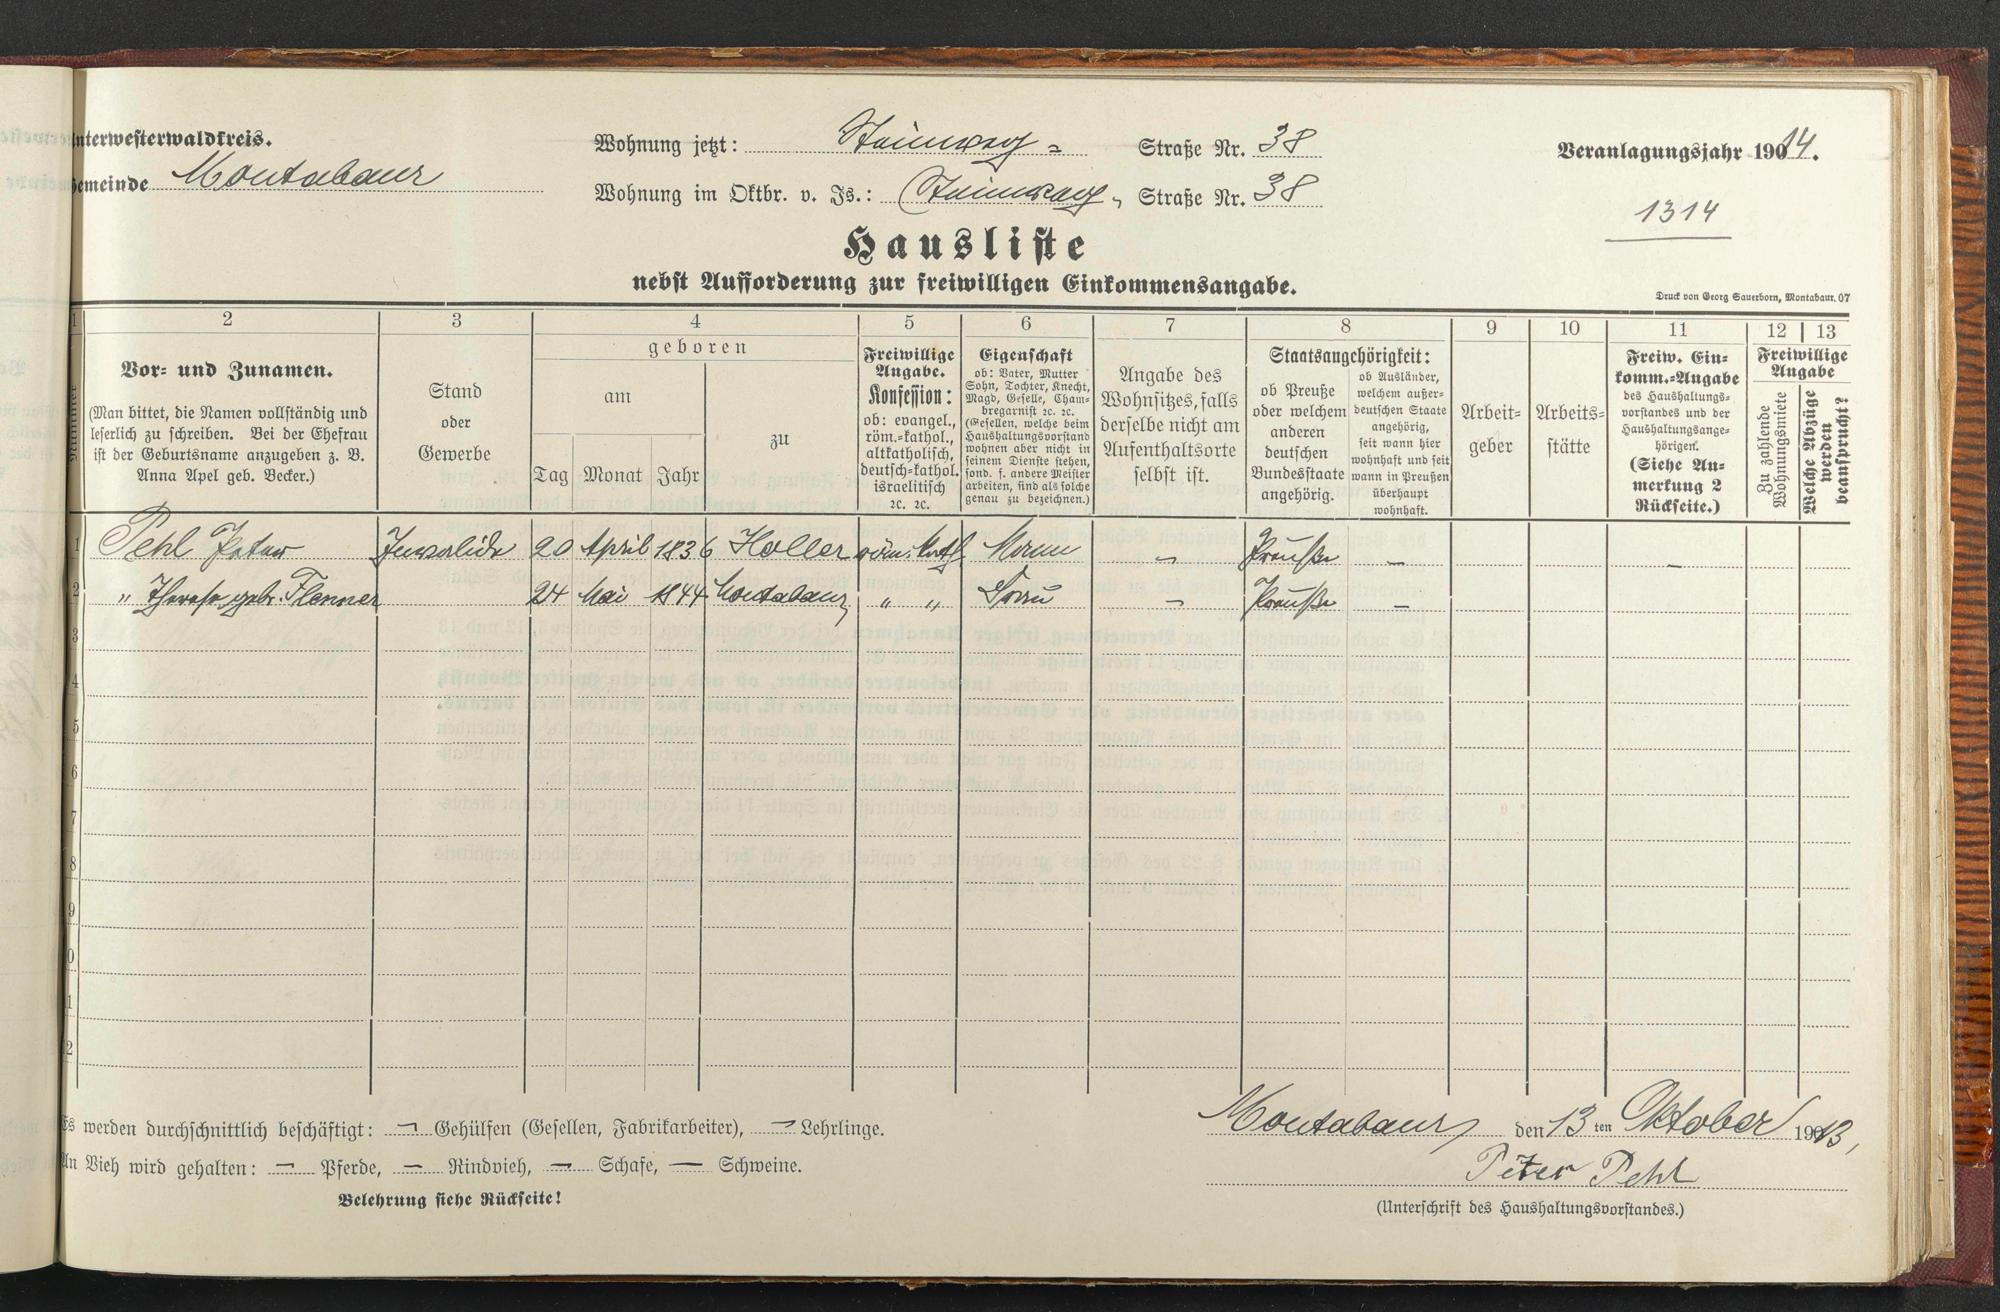 Unterwesterwaldkreis.
Gemeinde Montabaur
Wohnung jetzt: Steinweg = Straße Nr. 38
Wohnung im Oktbr. v. Js.: Steinweg, Straße Nr. 38
Veranlagungsjahr 19014.
1314
Hausliste
nebst Aufforderung zur freiwilligen Einkommensangabe.
Druck von Georg Sauerborn, Montabaur. 07
1 2 3 4 5 6 7 8 9 10 11 12 13
Nummer
Vor- und Zunamen.
(Man bittet, die Namen vollständig und
leserlich zu schreiben. Bei der Ehefrau
ist der Geburtsname anzugeben z. B.
Anna Apel geb. Becker.)
Stand
oder
Gewerbe
geboren
am
Tag Monat Jahr
zu
Freiwillige
Angabe.
Konfession:
ob: evangel.,
röm.-kathol.,
altkatholisch,
deutsch-kathol.
israelitisch
ꝛc. ꝛc.
Eigenschaft
ob: Vater, Mutter
Sohn, Tochter, Knecht,
Magd, Geselle, Cham-
bregarnist ꝛc. ꝛc.
(Gesellen, welche beim
Haushaltungsvorstand
wohnen aber nicht in
seinem Dienste stehen,
sond. f. andere Meister
arbeiten, sind als solche
genau zu bezeichnen.)
Angabe des
Wohnsitzes, falls
derselbe nicht am
Aufenthaltsorte
selbst ist.
Staatsangehörigkeit:
ob Preuße
oder welchem
anderen
deutschen
Bundesstaate
angehörig.
ob Ausländer,
welchem außer-
deutschen Staate
angehörig,
seit wann hier
wohnhaft und seit
wann in Preußen
überhaupt
wohnhaft.
Arbeit-
geber
Arbeits-
stätte
Freiw. Ein-
komm.-Angabe
des Haushaltungs-
vorstandes und der
Haushaltungsange-
hörigen.
(Siehe An-
merkung 2
Rückseite.)
Freiwillige
Angabe
Zu zahlende
Wohnungsmiete
Welche Abzüge
werden
beansprucht?
1 Pehl Peter Invalide 20 April 1836 Holler röm. kath. Mann - Preuße - -
2 " Therese geb. Flenner 24 Mai 1844 Montabaur " " Frau - Preuße -
3
4
5
6
7
8
9
0
1
2
Es werden durchschnittlich beschäftigt: — Gehülfen (Gesellen, Fabrikarbeiter), — Lehrlinge.
An Vieh wird gehalten: — Pferde, — Rindvieh, — Schafe, — Schweine.
Belehrung siehe Rückseite!
Montabaur, den 13 ten Oktober 19013,
Peter Pehl
(Unterschrift des Haushaltungsvorstandes.)